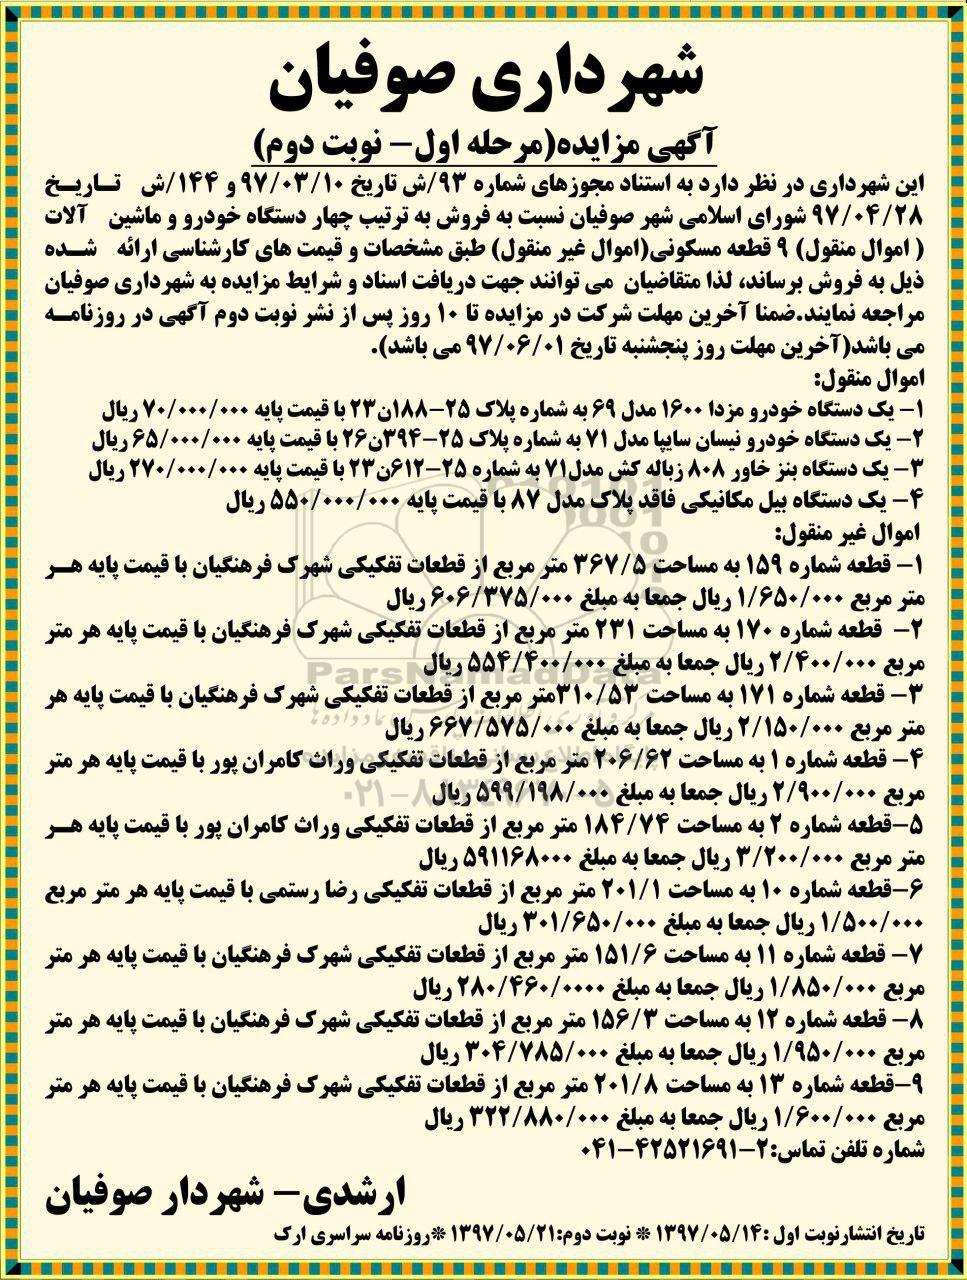 شهرداری صوفیان
آگهی مزایده(مرحله اول- نوبت دوم)
این شهرداری در نظر دارد به استناد مجوزهای شماره ۹۳/ش تاریخ ۹۷/۰۳/۱۰ و ۱۴۴/ش تاریخ
۹۷/۰۴/۲۸ شورای اسلامی شهر صوفیان نسبت به فروش به ترتیب چهار دستگاه خودرو و ماشین آلات
( اموال منقول) ۹ قطعه مسکونی(اموال غیر منقول) طبق مشخصات و قیمت های کارشناسی ارائه شده
ذیل به فروش برساند، لذا متقاضیان می توانند جهت دریافت اسناد و شرایط مزایده به شهرداری صوفیان
مراجعه نمایند.ضمنا آخرین مهلت شرکت در مزایده تا ۱۰ روز پس از نشر نوبت دوم آگهی در روزنامه
می باشد(آخرین مهلت روز پنجشنبه تاریخ ۹۷/۰۶/۰۱ می باشد).
اموال منقول:
۱- یک دستگاه خودرو مزدا ۱۶۰۰ مدل ۶۹ به شماره پلاک ۲۵-۱۸۸ن۲۳ با قیمت پایه ۷۰/۰۰۰/۰۰۰ ریال
۲- یک دستگاه خودرو نیسان سایپا مدل ۷۱ به شماره پلاک ۲۵-۳۹۴ن۲۶ با قیمت پایه ۶۵/۰۰۰/۰۰۰ ریال
۳- یک دستگاه بنز خاور ۸۰۸ زباله کش مدل۷۱ به شماره ۲۵-۶۱۲ن۲۳ با قیمت پایه ۲۷۰/۰۰۰/۰۰۰ ریال
۴- یک دستگاه بیل مکانیکی فاقد پلاک مدل ۸۷ با قیمت پایه ۵۵۰/۰۰۰/۰۰۰ ریال
اموال غیر منقول:
۱- قطعه شماره ۱۵۹ به مساحت ۳۶۷/۵ متر مربع از قطعات تفکیکی شهرک فرهنگیان با قیمت پایه هر
متر مربع ۱/۶۵۰/۰۰۰ ریال جمعا به مبلغ ۶۰۶/۳۷۵/۰۰۰ ریال
۲- قطعه شماره ۱۷۰ به مساحت ۲۳۱ متر مربع از قطعات تفکیکی شهرک فرهنگیان با قیمت پایه هر متر
مربع ۲/۴۰۰/۰۰۰ ریال جمعا به مبلغ ۵۵۴/۴۰۰/۰۰۰ ریال
۳- قطعه شماره ۱۷۱ به مساحت ۳۱۰/۵۳متر مربع از قطعات تفکیکی شهرک فرهنگیان با قیمت پایه هر
متر مربع ۲/۱۵۰/۰۰۰ ریال جمعا به مبلغ ۶۶۷/۵۷۵/۰۰۰ ریال
۴- قطعه شماره ۱ به مساحت ۲۰۶/۶۲ متر مربع از قطعات تفکیکی وراث کامران پور با قیمت پایه هر متر
مربع ۲/۹۰۰/۰۰۰ ریال جمعا به مبلغ ۵۹۹/۱۹۸/۰۰۰ ریال
۵-قطعه شماره ۲ به مساحت ۱۸۴/۷۴ متر مربع از قطعات تفکیکی وراث کامران پور با قیمت پایه هر
متر مربع ۳/۲۰۰/۰۰۰ ریال جمعا به مبلغ ۵۹۱۱۶۸۰۰۰ ریال
۶-قطعه شماره ۱۰ به مساحت ۲۰۱/۱ متر مربع از قطعات تفکیکی رضا رستمی با قیمت پایه هر متر مربع
۱/۵۰۰/۰۰۰ ریال جمعا به مبلغ ۳۰۱/۶۵۰/۰۰۰ ریال
۷- قطعه شماره ۱۱ به مساحت ۱۵۱/۶ متر مربع از قطعات تفکیکی شهرک فرهنگیان با قیمت پایه هر متر
مربع ۱/۸۵۰/۰۰۰ ریال جمعا به مبلغ ۲۸۰/۴۶۰/۰۰۰۰ ریال
۸- قطعه شماره ۱۲ به مساحت ۱۵۶/۳ متر مربع از قطعات تفکیکی شهرک فرهنگیان با قیمت پایه هر متر
مربع ۱/۹۵۰/۰۰۰ ریال جمعا به مبلغ ۳۰۴/۷۸۵/۰۰۰ ریال
۹-قطعه شماره ۱۳ به مساحت ۲۰۱/۸ متر مربع از قطعات تفکیکی شهرک فرهنگیان با قیمت پایه هر متر
مربع ۱/۶۰۰/۰۰۰ ریال جمعا به مبلغ ۳۲۲/۸۸۰/۰۰۰ ریال
شماره تلفن تماس:۲-۴۲۵۲۱۶۹۱-۰۴۱
ارشدی- شهردار صوفیان
تاریخ انتشارنوبت اول :۱۳۹۷/۰۵/۱۴ * نوبت دوم:۱۳۹۷/۰۵/۲۱ *روزنامه سراسری ارک
ParsNamadData